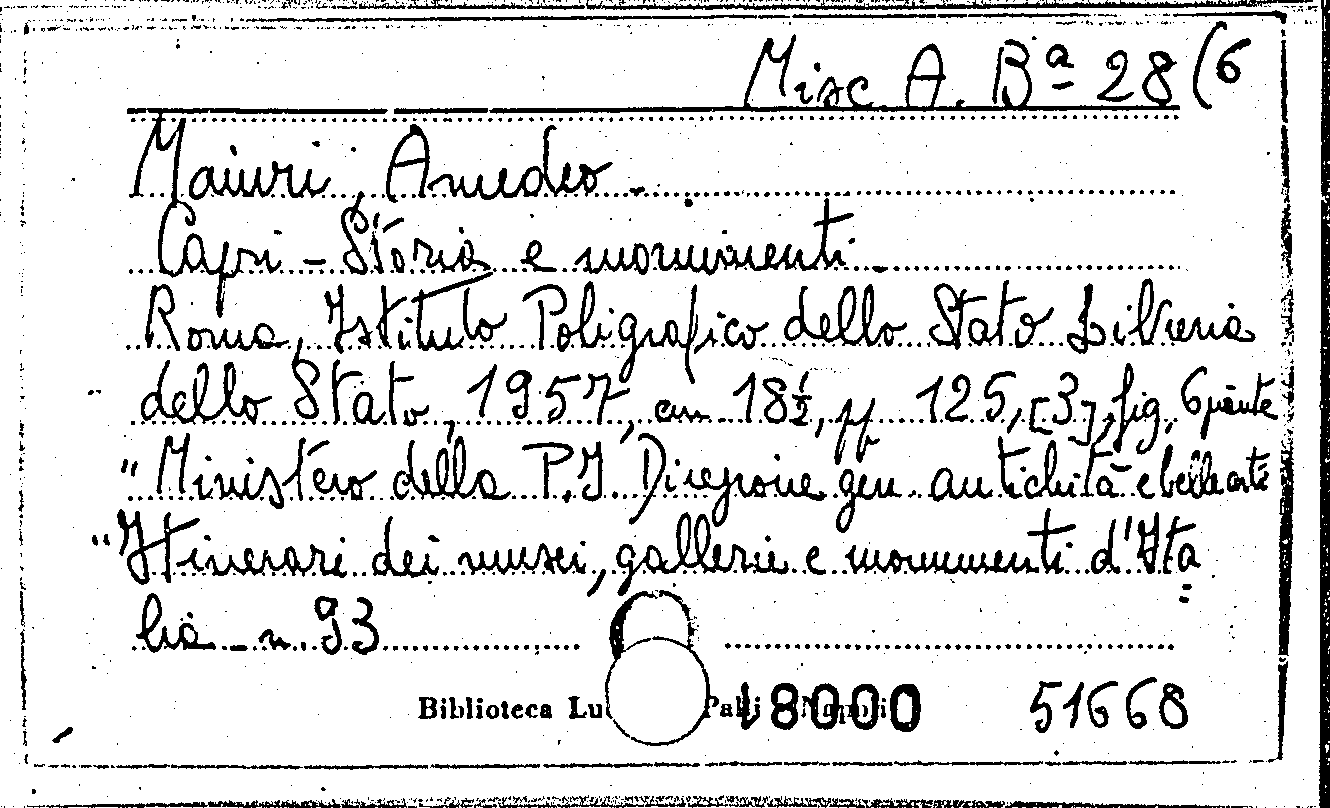 Misc A. Bª 28 (6
Maiuri, Amedeo.
Capri - Storia e monumenti.
Roma, Istituto Poligrafico dello Stato Libreria
dello Stato, 1957, cm 18½, pp 125, [3], fig, 6 piante
"Ministero della P.I. Direzione gen. antichità e belle arti
"Itinerari dei musei, gallerie e monumenti d'Ita=
lia - n. 93
Biblioteca 18000 51668